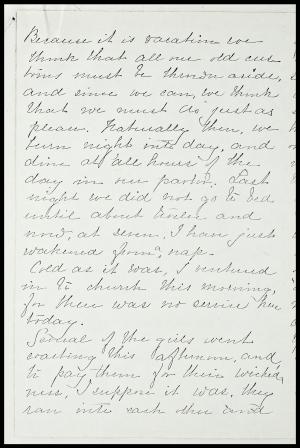 Because it is vacation we
think that all our old cus
toms must be thrown aside,
and since we can, we think
that we must do just as
please. Naturally then, we
turn night into day, and
dine at all hours of the
day in our parlor. Last
night we did not go to bed
until about twelve and
now, at seven, I have just
wakened from a nap.
Cold as it was, I ventured
in to church this morning,
for there was no service here
today.
Several of the girls went
coasting this afternoon, and
to pay them for their wicked
ness, I suppose it was, they
ran into each other and